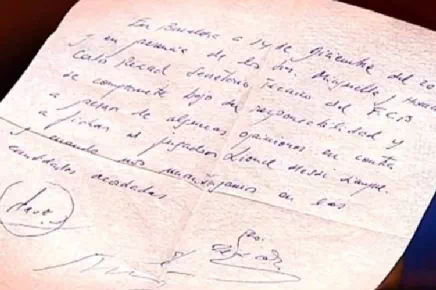 En Barcelona a 14 de Diciembre del 20
y en presencia de los Srs. Minguella y Horacio
Carlo Rexach Secretario Tecnico del F.C.B
se compromete bajo su responsabilidad y
a pesar de algunas opiniones en contra
a fichar al jugador Lionel Messi siempre
y cuando nos mantengamos en las
cantidades acordadas